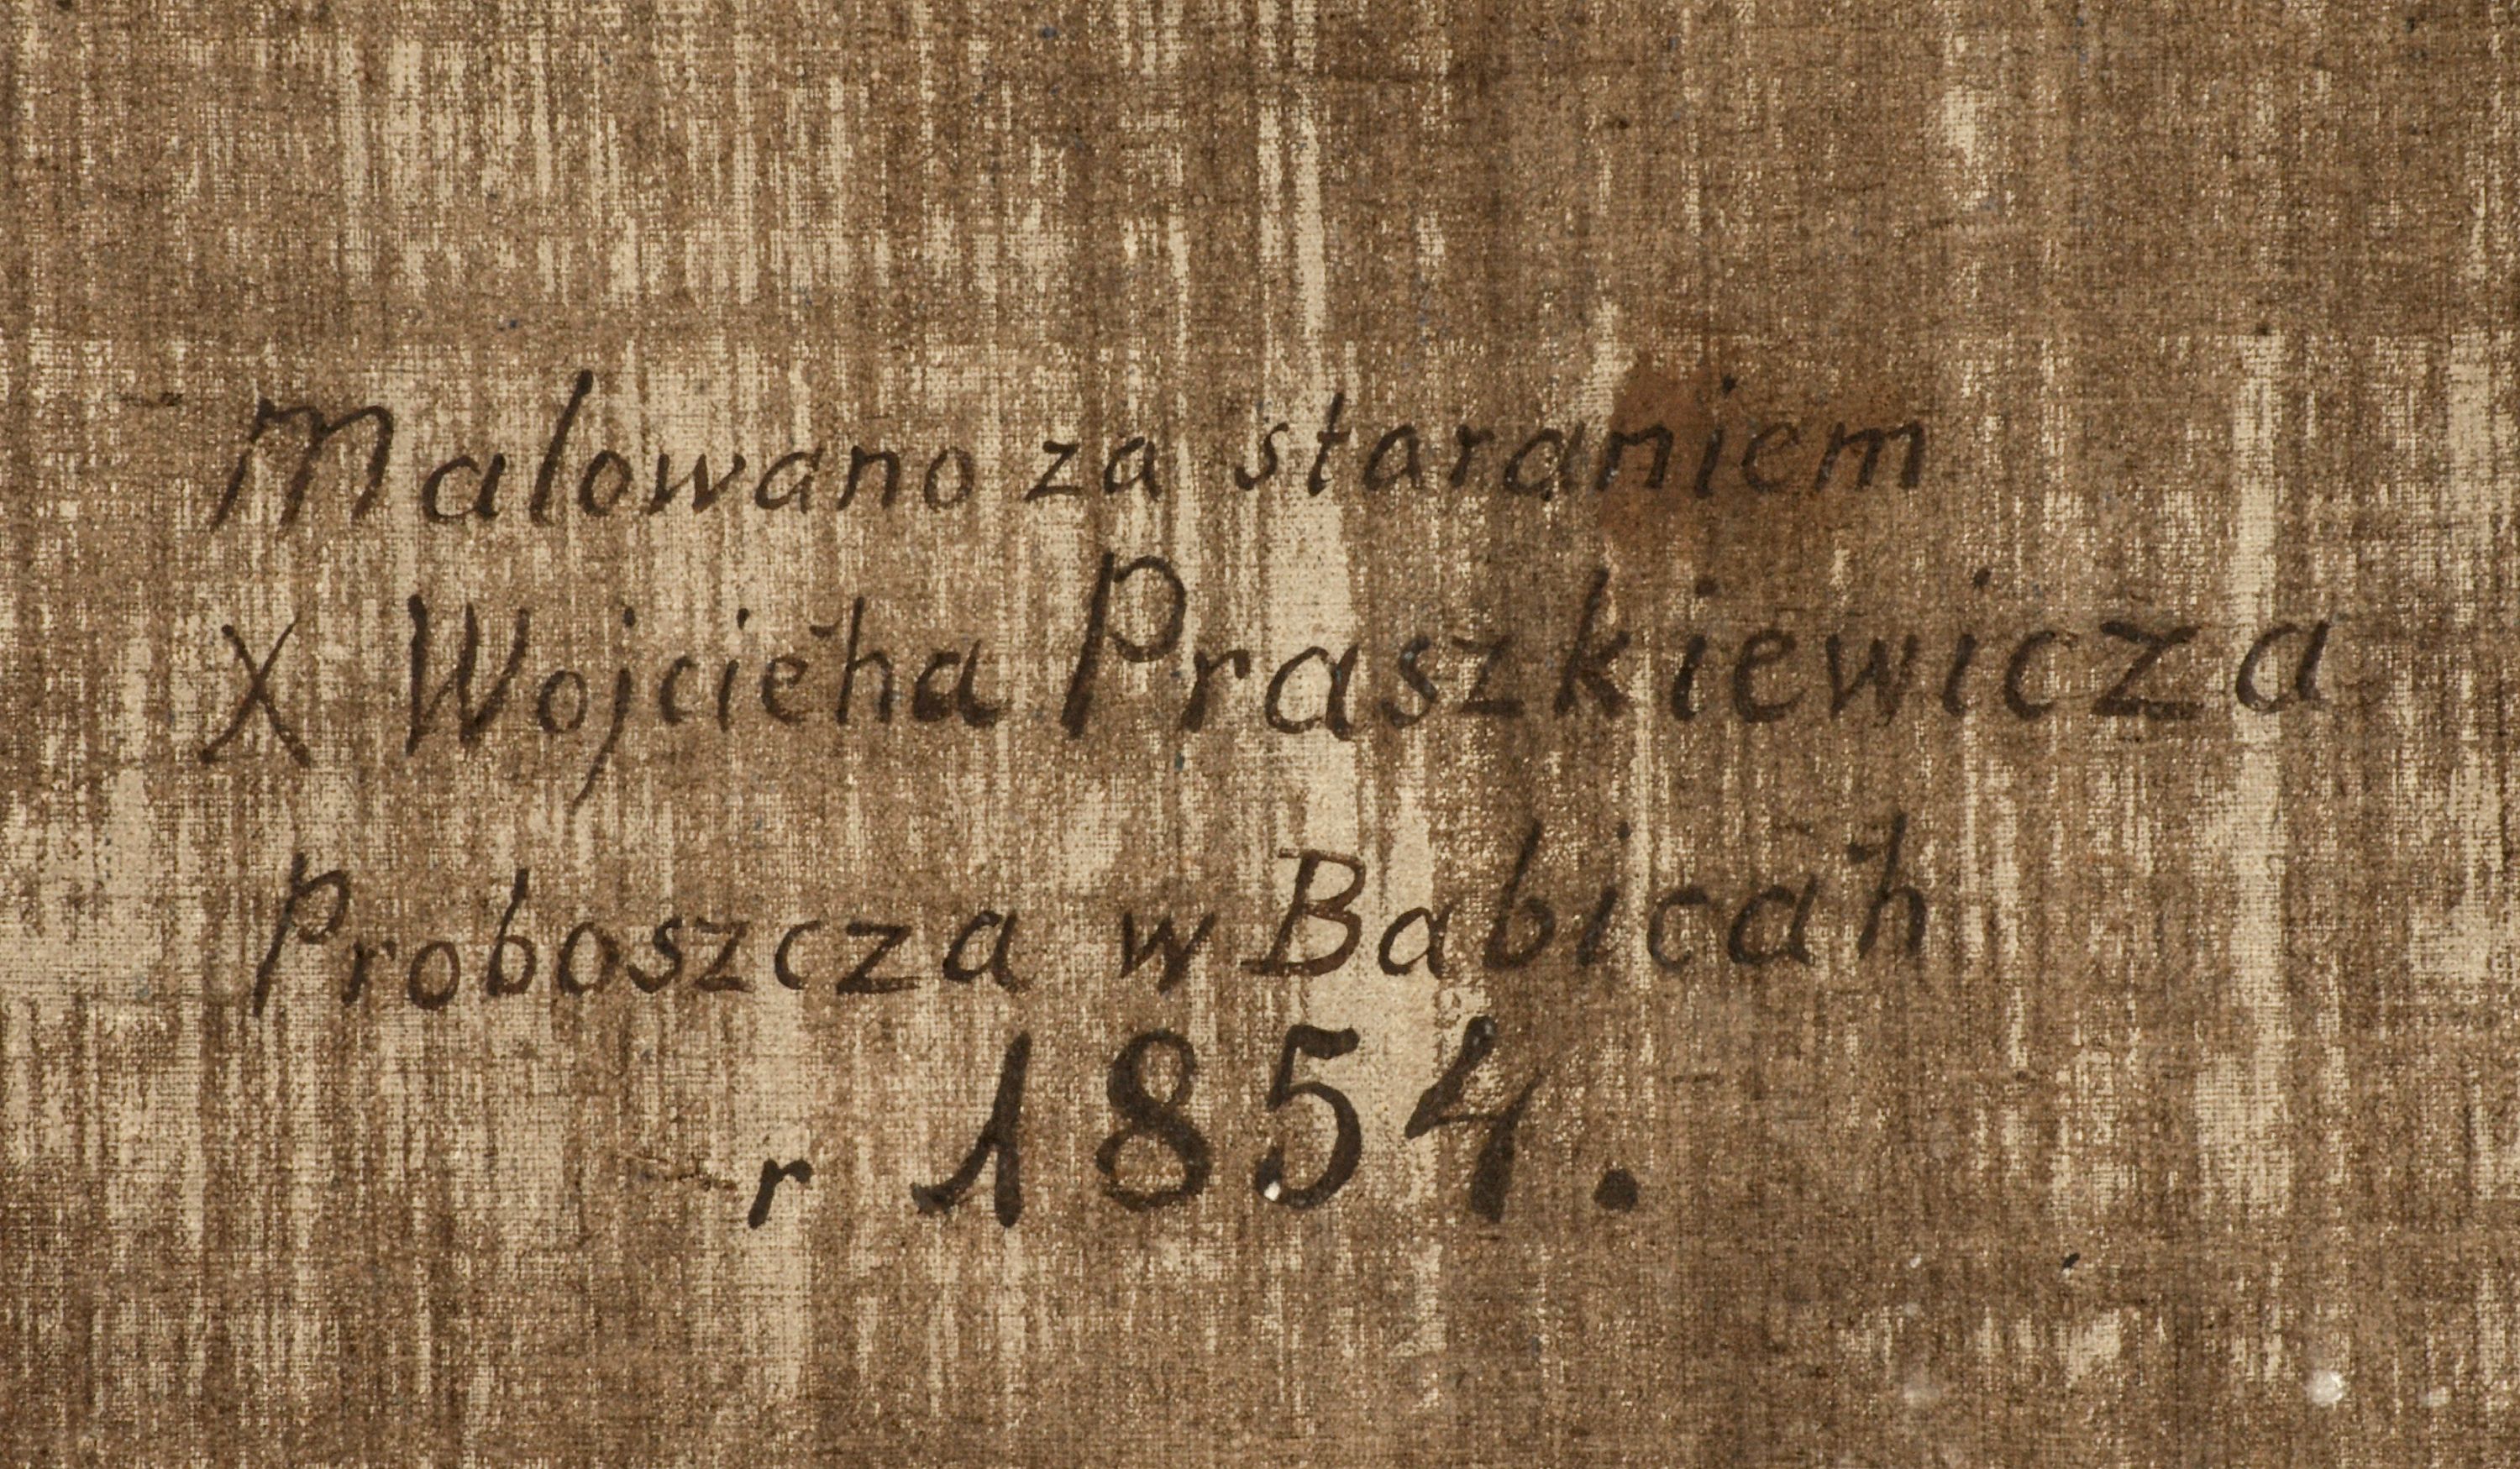 Malowano za staraniem
X Wojcieħa Praszkiewicza
Proboszcza w Babicaħ
r 1854.